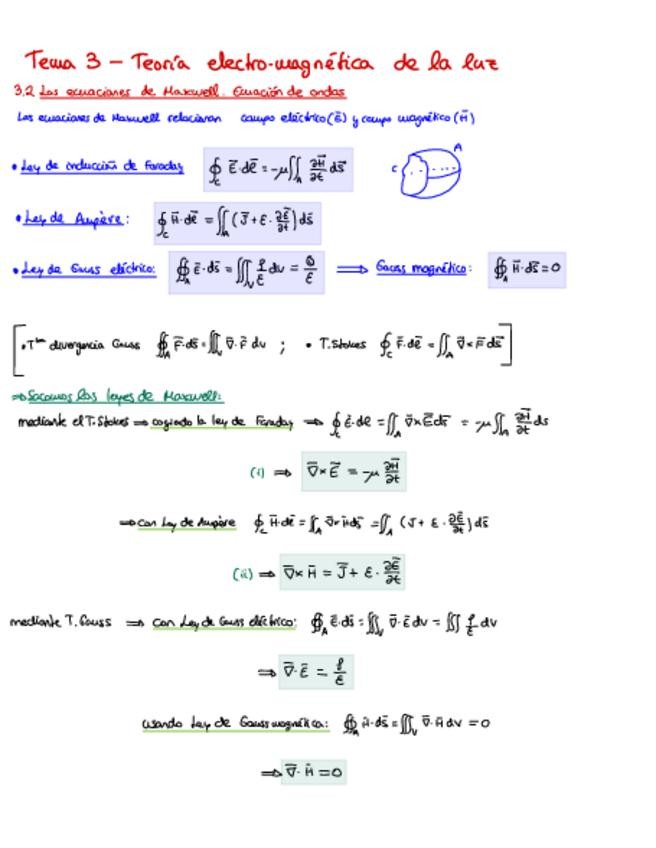 Tema 3 – Teoría electro-magnética de la luz
3.2 Las ecuaciones de Maxwell. Ecuación de ondas
Las ecuaciones de Maxwell relacionan campo eléctrico (E̅) y campo magnético (H̅)
• Ley de inducción de Faraday ∮_C E̅·dl̅ = -μ∬_A ∂H̅/∂t ds̅
C A
• Ley de Ampère: ∮_C H̅·dl̅ = ∬_A (J̅ + ε·∂E̅/∂t) ds̅
• Ley de Gauss eléctrico: ∯_A E̅·ds̅ = ∭_V ρ/ε dv = Q/ε ⟹ Gauss magnético: ∯_A H̅·ds̅ = 0
[• T^ma divergencia Gauss ∯_A F̅·ds̅ = ∭_V ∇̅·F̅ dv ; • T. Stokes ∮_C F̅·dl̅ = ∬_A ∇̅×F̅ ds̅]
⇒ Sacamos las leyes de Maxwell:
mediante el T. Stokes ⇒ cogiendo la ley de Faraday ⇒ ∮_C E̅·dl = ∬_A ∇̅×E̅ ds̅ = -μ∬_A ∂H̅/∂t ds
(i) ⇒ ∇̅×E̅ = -μ ∂H̅/∂t
⇒ con Ley de Ampère ∮_C H̅·dl̅ = ∬_A ∇̅×H̅ ds̅ = ∬_A (J + ε·∂E̅/∂t) ds̅
(ii) ⇒ ∇̅×H̅ = J̅ + ε·∂E̅/∂t
mediante T. Gauss ⇒ con Ley de Gauss eléctrico: ∯_A E̅·ds̅ = ∭_V ∇̅·E̅ dv = ∭ ρ/ε dv
⇒ ∇̅·E̅ = ρ/ε
usando Ley de Gauss magnética: ∯_A H̅·ds̅ = ∭_V ∇̅·H̅ dv = 0
⇒ ∇̅·H̅ = 0